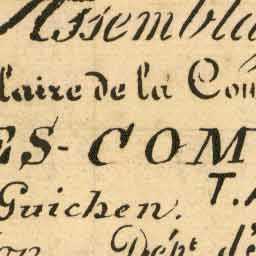 Assembla
laire de la Com
ES-COM
Guichen. T.
Dépt d'